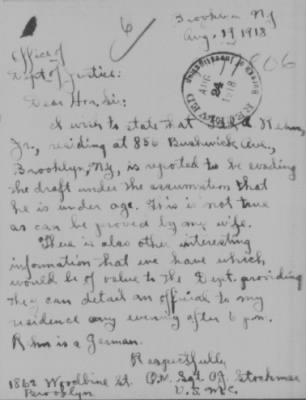 6
Brooklyn NY
Aug 19 1918
606
Office of
Dept of Justice:
RECEIVED
AUG
24
1918
Dear Hon. Sir:
I write to state that
Jr., residing at 856 Bushwick Ave.,
Brooklyn, NY, is reported to be evading
the draft under the assumption that
he is under age. This is not true
as can be proved by my wife.
There is also other interesting
information that we have which
would be of value to the Dept. providing
they can detail an official to my
residence any evening after 6 p.m.
is a German.
Respectfully
1862 Woodbine St. Sgt. Stockman
Brooklyn U.S.M.C.